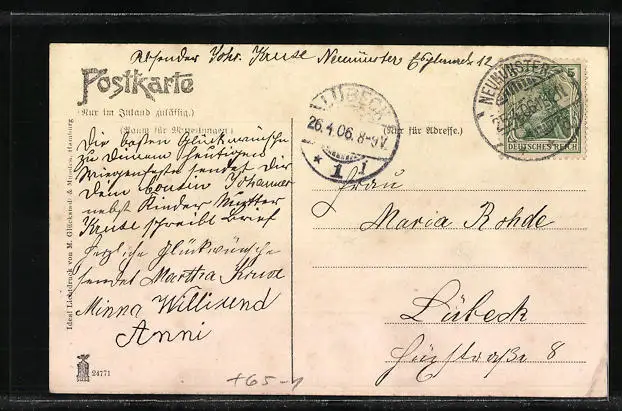 Absender Johs. Kruse Neumünster Esplanade 12
Postkarte
(Nur im Inland zulässig.)
(Raum für Mitteilungen)
(Nur für Adresse.)
NEUMÜNSTER
5
DEUTSCHES REICH
LÜBECK
26.4.06.8-9V.
* 1
Die besten Glückwünsche
zu Deinem heutigen
Wiegenfeste sendet Dir
Dein Johannes
nebst Kinder Mutter
Kruse schreibt Brief
Herzliche Glückwünsche
sendet Martha Kruse
Minna Willi und
Anni
Frau
Maria Rohde
Lübeck
Hüxstraße 8
Ideal Lichtdruck von M. Glückstadt & Münden, Hamburg
24771